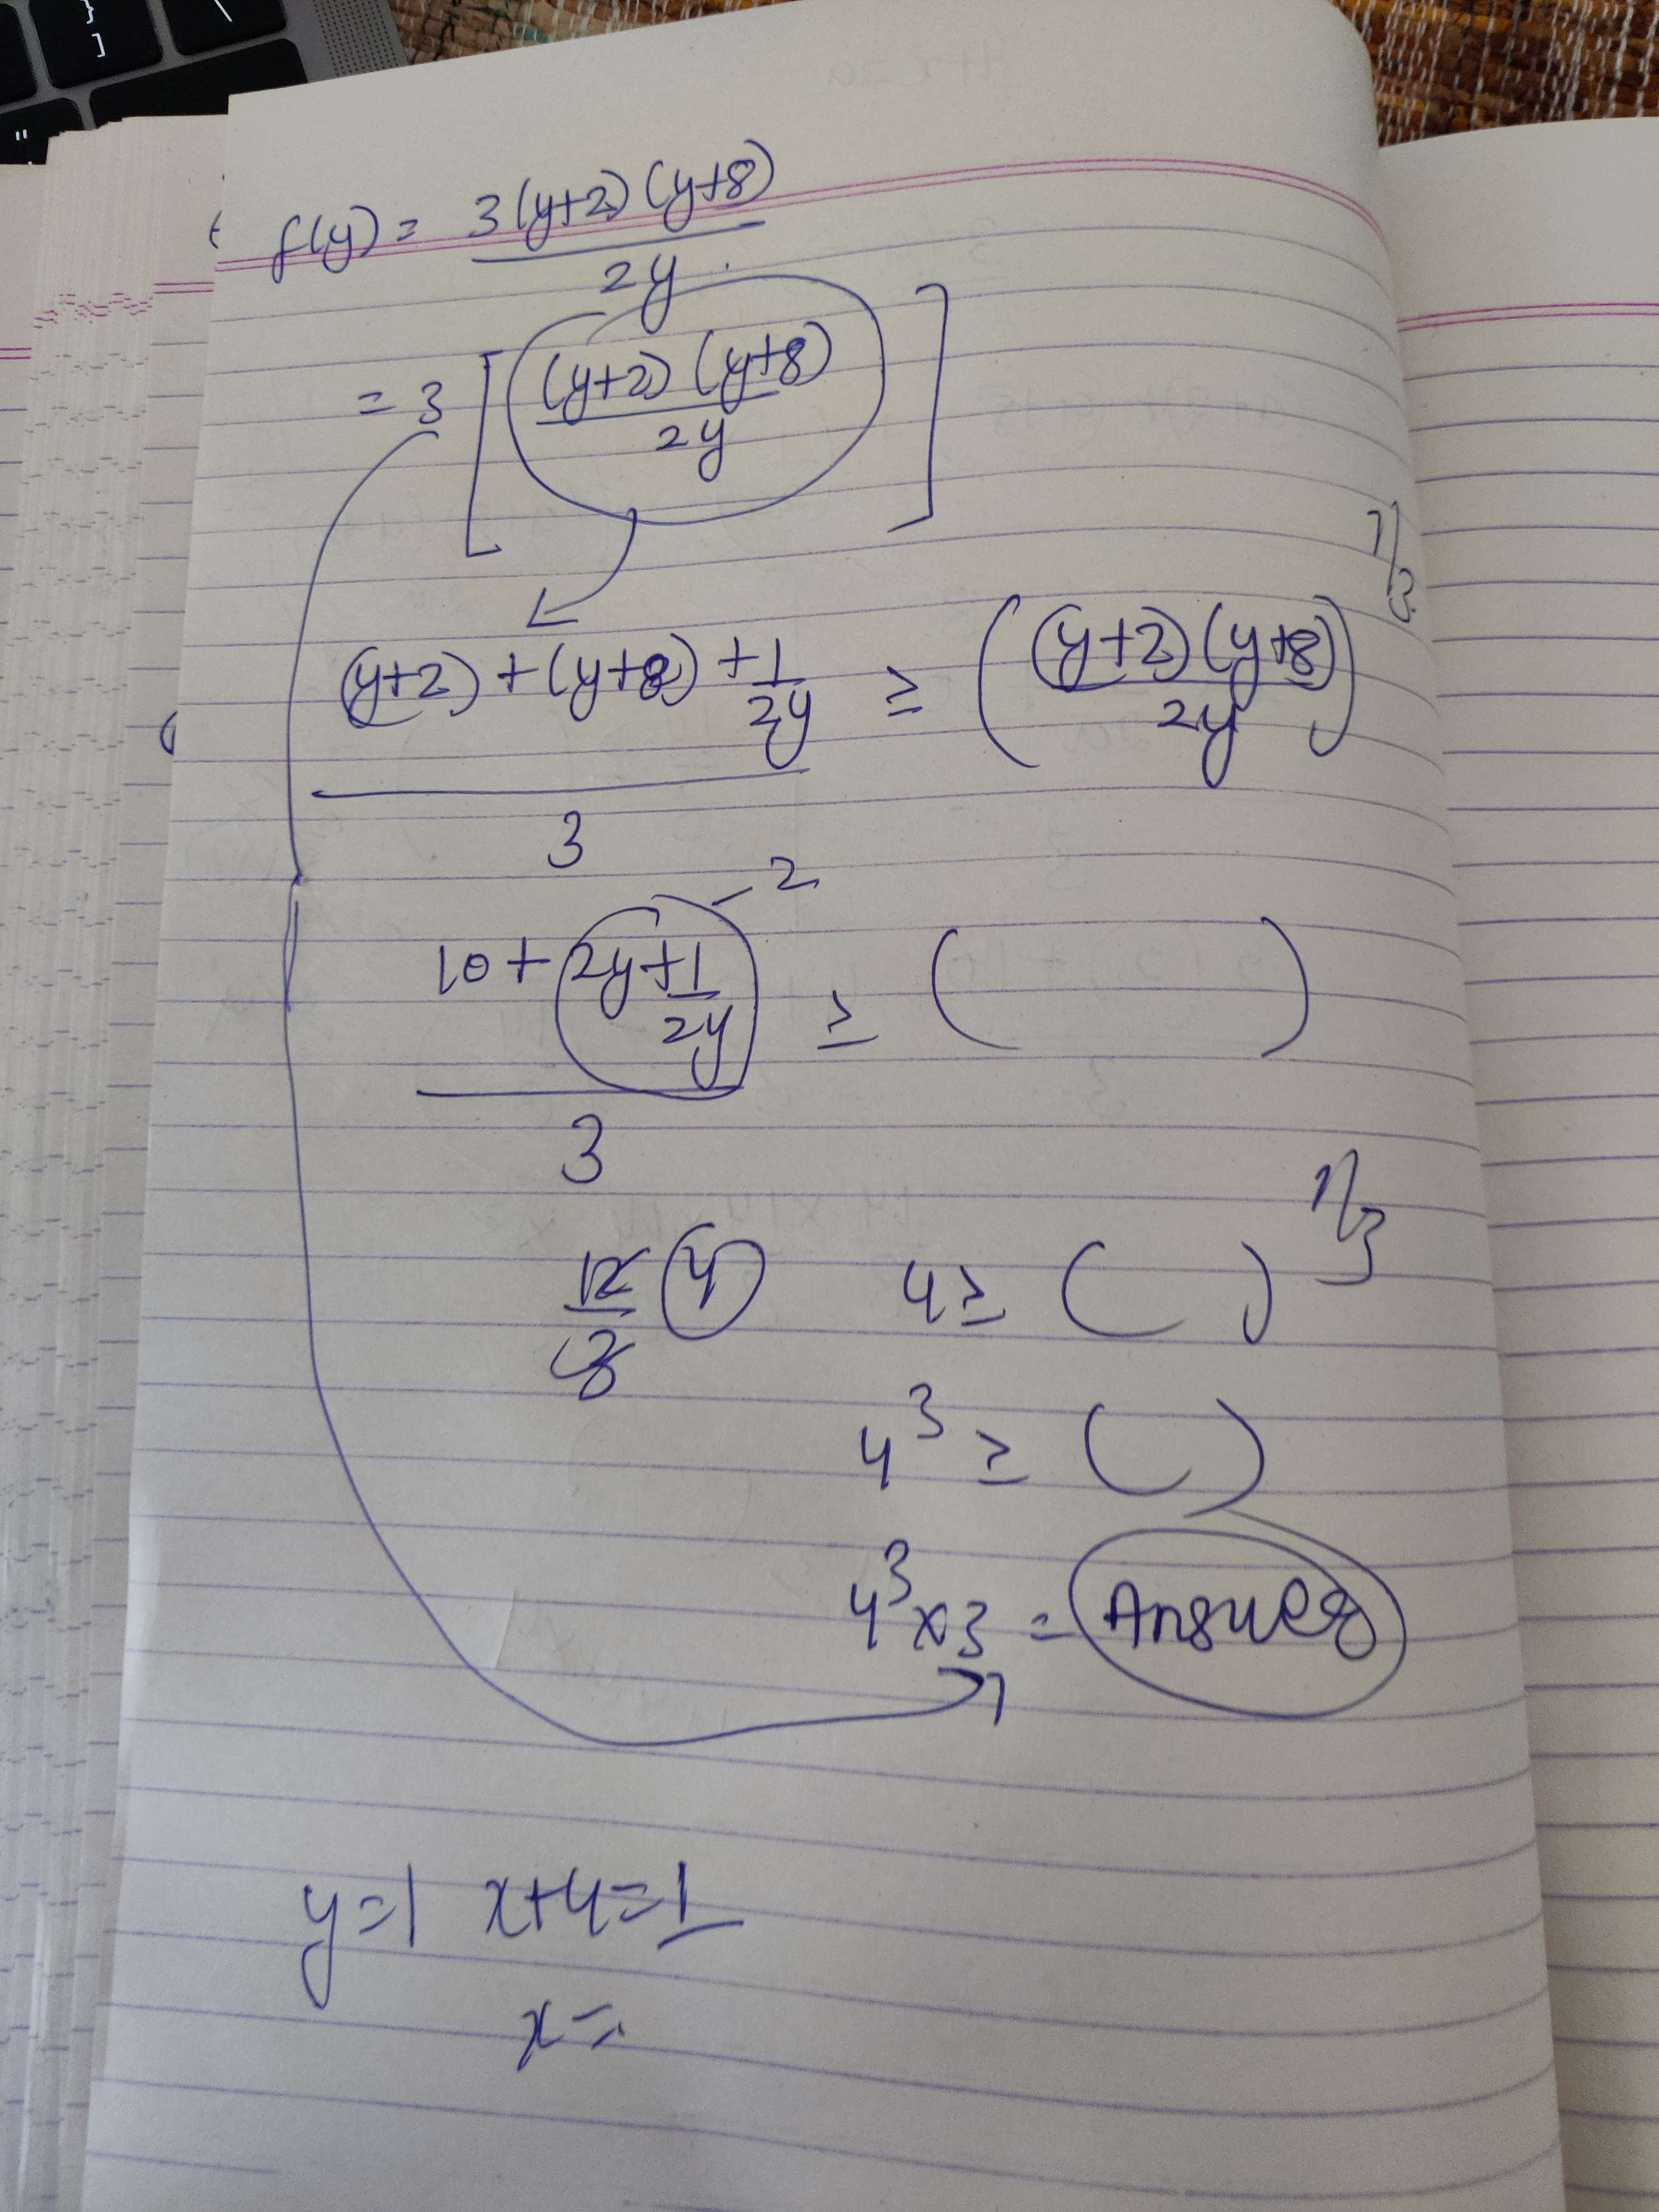 f(y) = 3(y+2)(y+8)
2y
= 3 [ (y+2)(y+8)
2y ]
(y+2) + (y+8) + 1/2y ≥ ( (y+2)(y+8) / 2y ) 1/3
3
2
10 + 2y + 1/2y ≥ ( )
3
12/3 4 4 ≥ ( ) 1/3
4³ ≥ ( )
4³ × 3 = Answer
y=1 x+4=1
x=